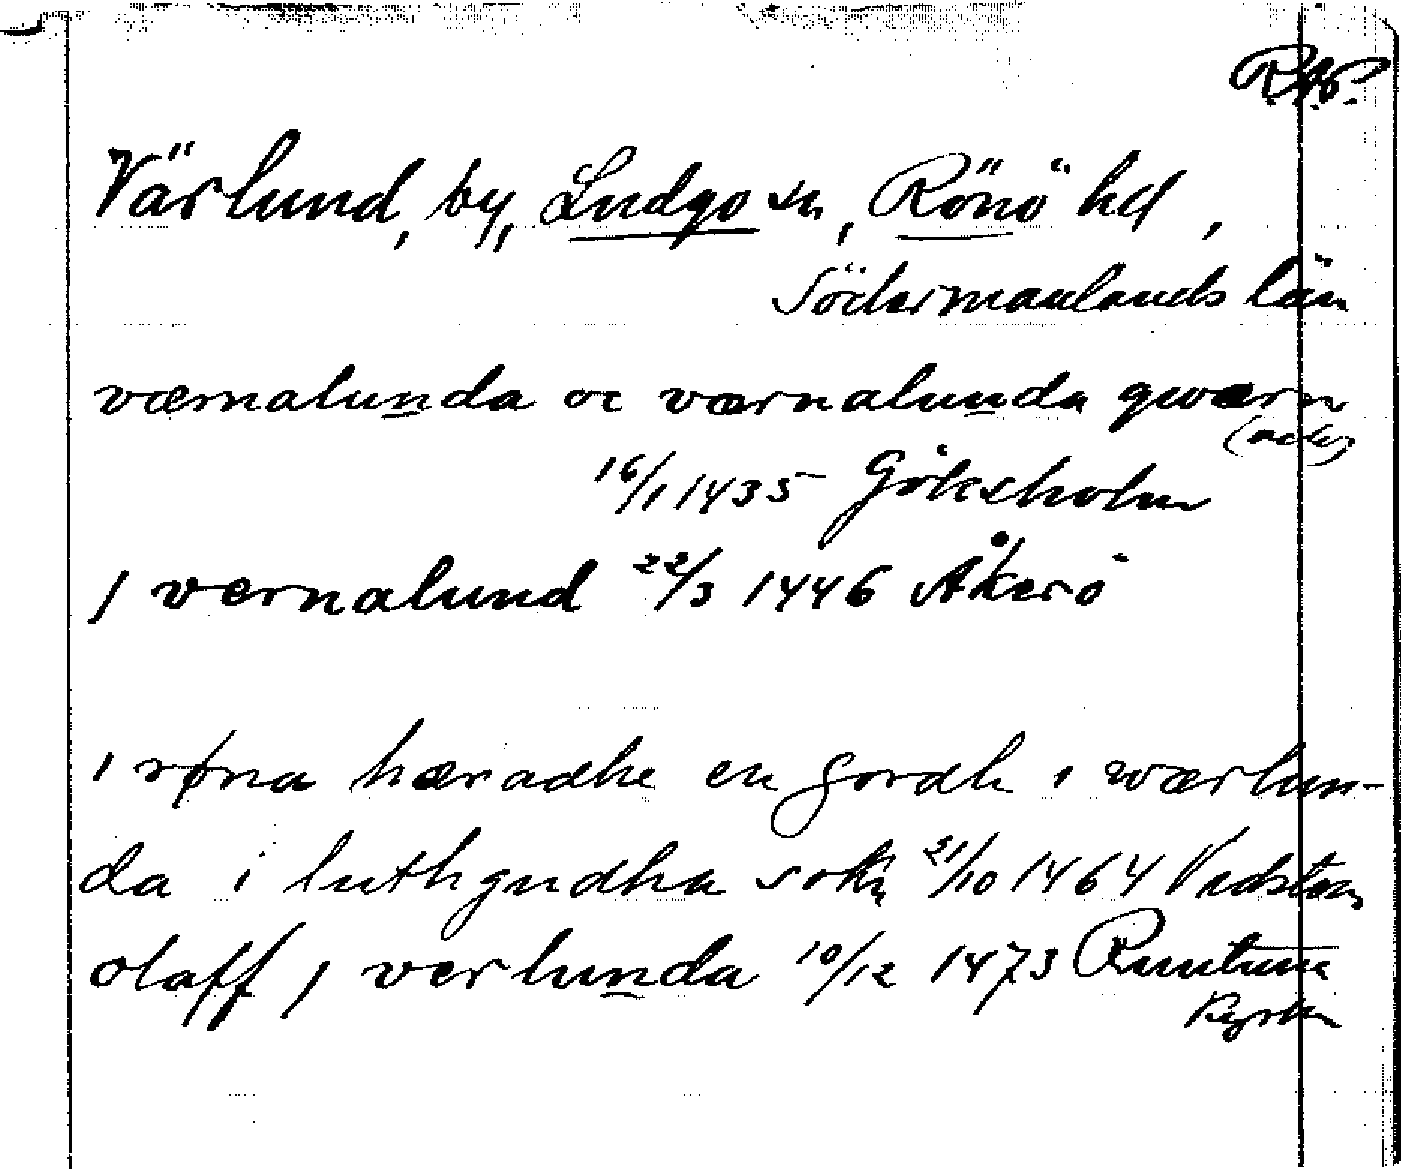 RAP.
Värlund, by, Ludgo sn, Rönö hd,
Södermanlands län
værnalunda oc værnalunda qwærn
16/1 1435 Göksholm
j vernalund 22/3 1446 Åkerö
i røna hæradhe en gordh i wærlun-
da i luthgudha sokn 21/10 1464 Vadstena
olaff j verlunda 10/12 1473 Runtuna
kyrka